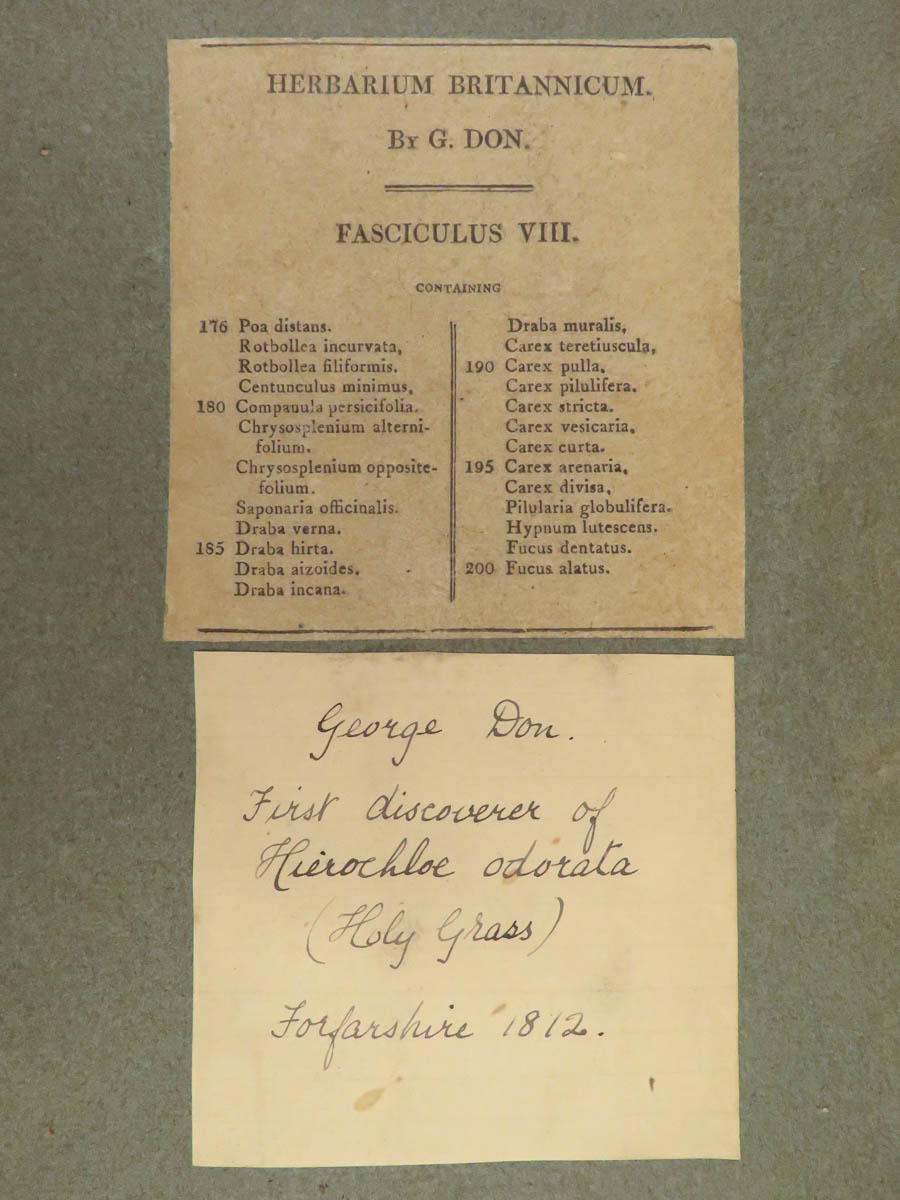 HERBARIUM BRITANNICUM.
By G. DON.
FASCICULUS VIII.
CONTAINING
176 Poa distans.
Rotbollea incurvata,
Rotbollea filiformis.
Centunculus minimus,
180 Companula persicifolia.
Chrysosplenium alterni-
folium.
Chrysosplenium opposite-
folium.
Saponaria officinalis.
Draba verna.
185 Draba hirta.
Draba aizoides.
Draba incana.
Draba muralis,
Carex teretiuscula,
190 Carex pulla,
Carex pilulifera.
Carex stricta.
Carex vesicaria,
Carex curta.
195 Carex arenaria,
Carex divisa,
Pilularia globulifera.
Hypnum lutescens.
Fucus dentatus.
200 Fucus alatus.
George Don.
First discoverer of
Hierochloe odorata
(Holy Grass)
Forfarshire 1812.